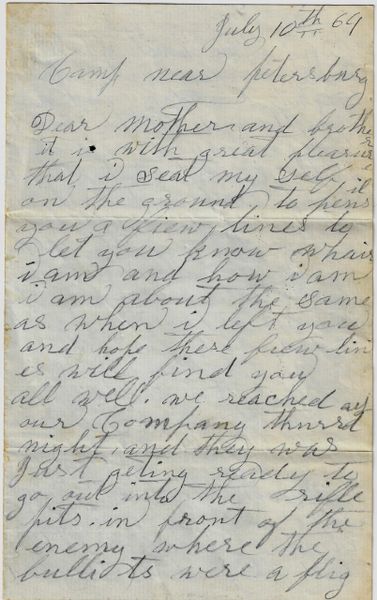 July 10th 64
Camp near petersburg
Dear mother and brother
it is with great pleasure
that i seat my self
on the ground to pen
you a fiew lines to
let you know whair
i am and how i am
i am about the same
as when i left you
and hope there fiew lin
es will find you
all well. we reached
our Company thursd
night and they was
Just geting ready to
go out into the rifle
pits. in front of the
enemy where the
bullits were a flig